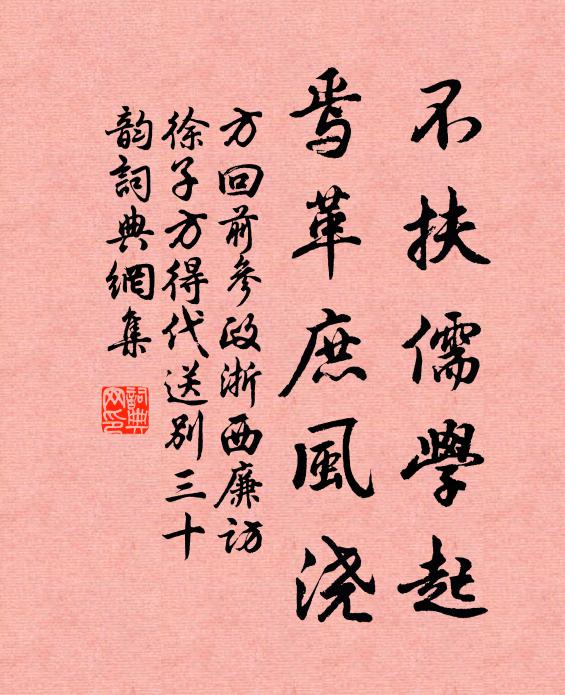 不扶儒學起
焉革庶風浇
方回前參政浙西廉访
徐子方得代送别三十
韵詞典網集
詞典
网印